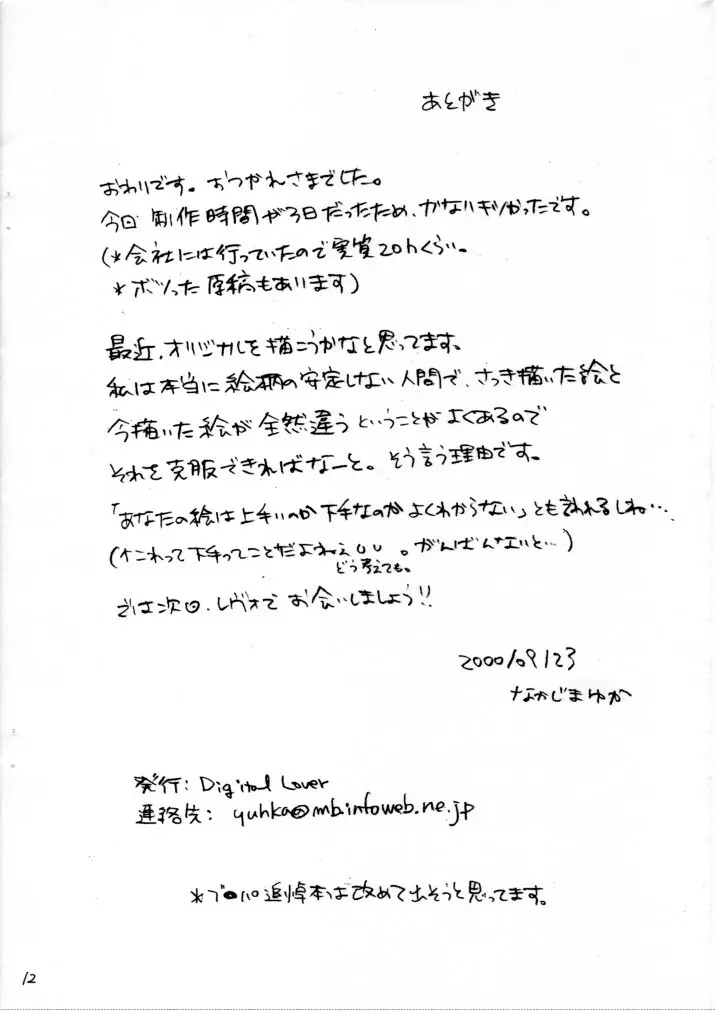 あとがき
おわりです。おつかれさまでした。
今回 制作時間が3日だったため、かなりギリかったです。
(*会社には行っていたので実質20hくらい。
*ボツった原稿もあります)
最近、オリジナルを描こうかなと思ってます。
私は本当に絵柄の安定しない人間で、さっき描いた絵と
今描いた絵が全然違うということがよくあるので
それを克服できればなーと。そう言う理由です。
「あなたの絵は上手いのか下手なのかよくわからない」とも言われるしね…
(てこれって下手ってことだよねぇUU。がんばんないと…)
どう考えても。
では次回、レヴォでお会いしましょう!!
2000/09/23
なかじまゆか
発行: Digital Lover
連絡先: yuhka@mb.infoweb.ne.jp
*プ●パ追悼本は改めて出そうと思ってます。
12